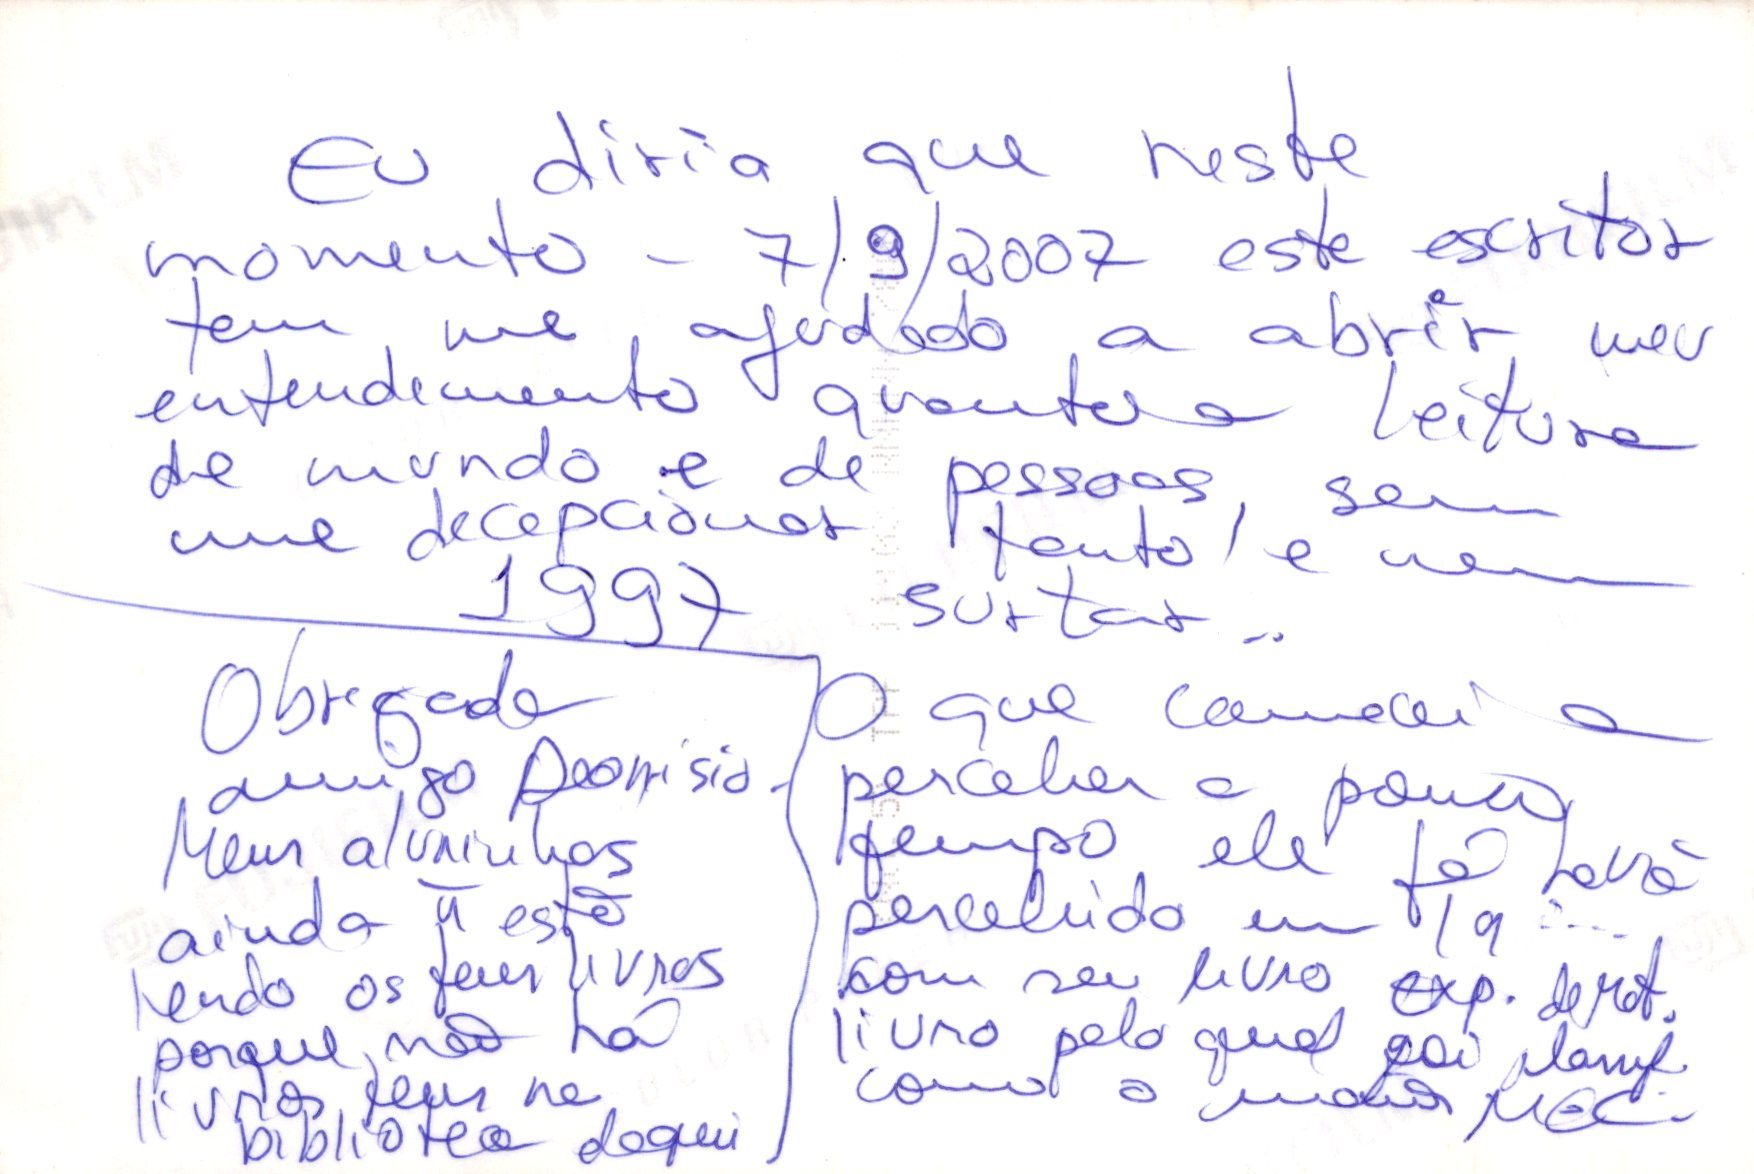 Eu diria que neste
momento - 7/9/2007 este escritor
tem me ajudado a abrir meu
entendimento quanto a leitura
de mundo e de pessoas, sem
me decepcionar tanto / e nem
surtar...
1997
Obrigada
amigo Deonisio.
Meus aluninhos
ainda ñ estõ
lendo os teus livros
porque não há
livros teus na
biblioteca daqui
O que comecei a
perceber a pouco
tempo ele já havia
percebido em 19 ....
com seu livro exp. de
livro pelo qual foi
como o MEC.